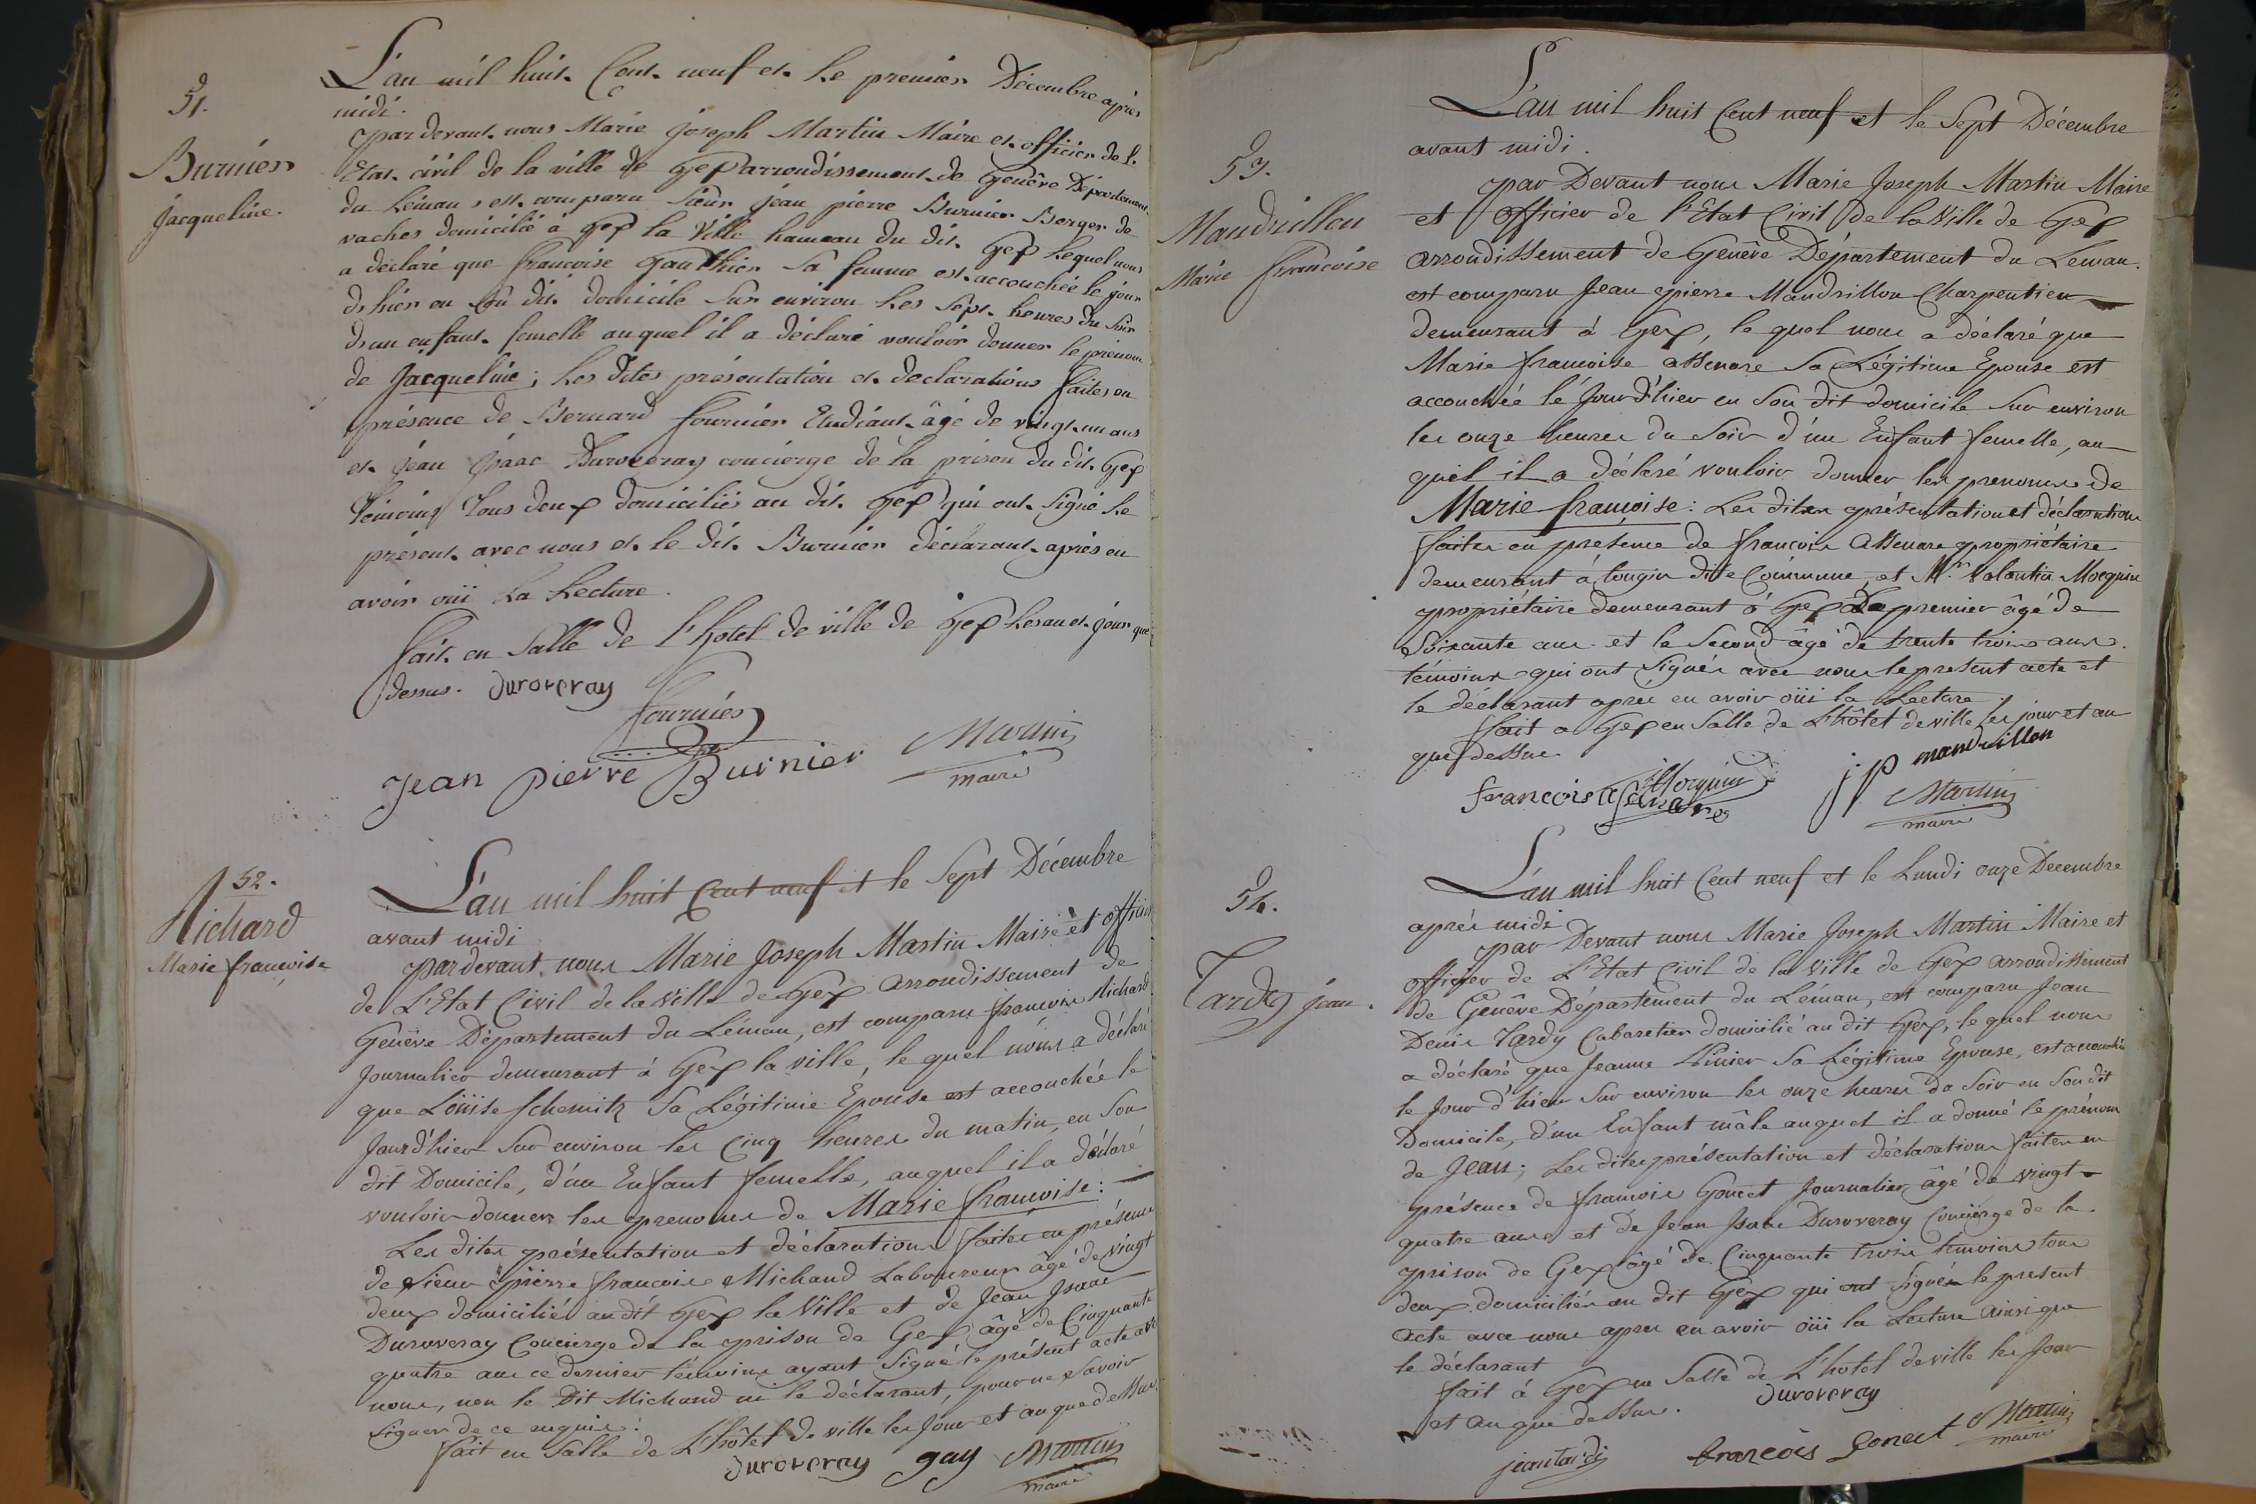 51.
Burnier
Jacqueline.
L'an mil huit Cent neuf et Le premier Décembre après
midi.
pardevant nous Marie joseph Martin Maire et officier de L
Etat civil de la ville de Gex arrondissement de Genêve Département
du Léman, est comparu Sieur jean pierre Burnier Berger de
vaches domicilié à gex la Ville hameau du dit Gex Lequel nous
a déclaré que francoise Gauthier Sa femme est accouchée le jour
d'hier en son dit domicile Sur environ Les Sept heures du Soir
d'un enfant femelle auquel il a déclaré vouloir donner le prénom
de Jacqueline; Les dites présentation et déclarations faites en
présence de Bernard fournier Etudiant âgé de vingt un ans
et jean jsaac Duroveray concierge de la prison du dit Gex
témoins Tous deux domiciliés au dit Gex qui ont Signé Le
présent avec nous et le dit Burnier déclarant après en
avoir oüi La Lecture.
fait en Salle de l'hotel de ville de Gex Les an et jour que
dessus. Duroveray
fournier
Jean Pierre Burnier Martin
maire
52.
Michard
Marie francoise
L'an mil huit Cent neuf et le Sept Décembre
avant midi
pardevant nous Marie Joseph Martin Maire et officier
de L'Etat Civil de la Ville de Gex arrondissement de
Genêve Département du Léman, est comparu francois Michard
Journalier demeurant à Gex la ville, le quel nous a déclaré
que Loüise Schemitz Sa Légitime Epouse est accouchée le
Jour d'hier Sur environ les Cinq heures du matin, en Son
dit Domicile, d'un Enfant femelle, auquel il a déclaré
vouloir donner les prenoms de Marie francoise:
Les dites présentation et déclarations faites en présence
de Sieur pierre francois Michaud Laboureur âgé de vingt
deux domicilié au dit Gex la Ville et de Jean Isaac
Duroveray Concierge de la prison de Gex âgé de Cinquante
quatre ans ce dernier témoins ayant Signé le présent acte avec
nous, non le Dit Michaud ni le déclarant, pour ne Savoir
Signer de ce enquis:
fait en Salle de L'hôtel de ville les Jour et an que dessus.
Duroveray gay Martin
maire
53.
Mandrillon
Marie francoise
L'an mil huit Cent neuf et le Sept Décembre
avant midi.
par Devant nous Marie Joseph Martin Maire
et officier de l'Etat Civil de la Ville de Gex
arrondissement de Genêve Département du Leman.
est comparu Jean pierre Mandrillon Charpentier
demeurant à Gex, le quel nous a déclaré que
Marie francoise assenare Sa Légitime Epouse est
accouchée le Jour d'hier en Son dit domicile Sur environ
les onze heures du Soir d'un Enfant femelle, au-
quel il a déclaré vouloir donner les prenoms de
Marie francoise: Les dites présentation et déclarations
faites en présence de francois assenare propriétaire
demeurant à tougin dite Commune, et Mr. Valantin Morquin
propriétaire demeurant à Gex Le premier âgé de
Soixante ans et le Second âgé de trente trois ans.
témoins qui ont Signés avec nous le present acte et
le déclarant apres en avoir oüi la Lecture.
fait a Gex en Salle de L'hôtel de ville les jour et an
que dessus
francois assenare Morquin jp mandrillon
Martin
maire
54.
Tardy jean.
L'an mil huit Cent neuf et le Lundi onze Decembre
après midi
par Devant nous Marie Joseph Martin Maire et
officier de L'Etat Civil de la Ville de Gex arrondissement
de Genêve Département du Léman, est comparu Jean
Denis Tardy Cabaretier domicilié au dit Gex, le quel nous
a déclaré que Jeanne Sa Légitime Epouse, est accouchée
le Jour d'hier Sur environ les onze heures du Soir en Son dit
Domicile, d'un Enfant mâle auquel il a donné le prénom
de Jean; Les dites présentation et déclarations faites en
présence de francois Gonet Journalier âgé de vingt
quatre ans et de Jean Isaac Duroveray Concierge de la
prison de Gex âgé de Cinquante trois témoins tous
deux domiciliés au dit Gex qui ont Signés le present
acte avec nous apres en avoir oüi la Lecture ainsi que
le déclarant
fait à Gex en Salle de L'hotel de ville les Jour
et an que dessus. Duroveray
jean tardi francois Gonect Martin
maire